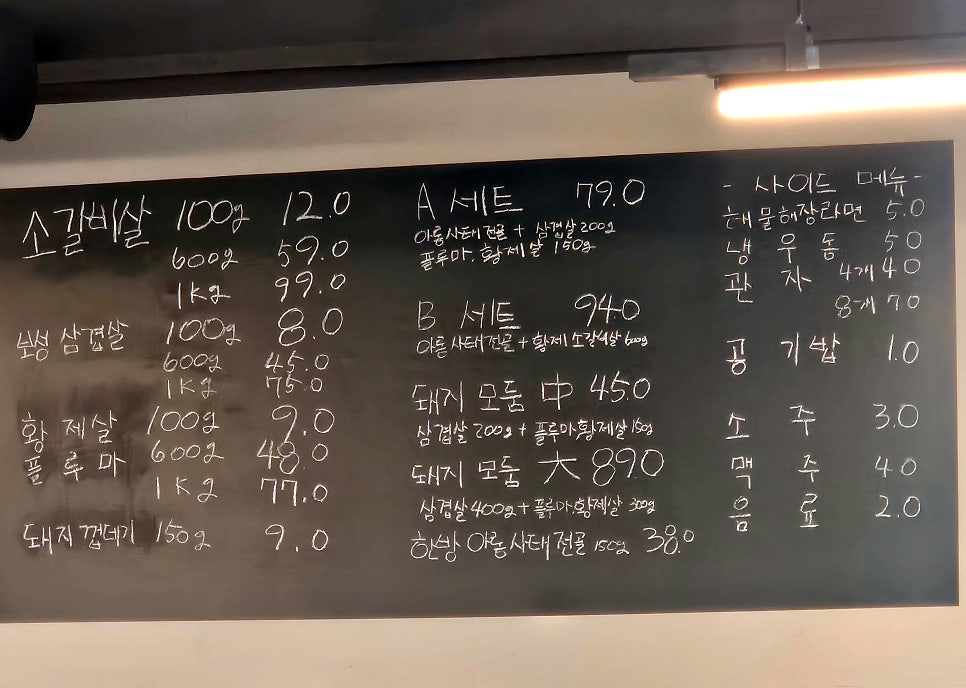 소갈비살 100g 12.0
600g 59.0
1kg 99.0
보성 삼겹살 100g 8.0
600g 45.0
1kg 75.0
황제살 100g 9.0
플루마 600g 48.0
1kg 77.0
돼지껍데기 150g 9.0
A 세트 79.0
아롱사태전골 + 삼겹살 200g
플루마, 황제살 150g
B 세트 94.0
아롱사태전골 + 황제 소갈비살 600g
돼지 모둠 中 45.0
삼겹살 200g + 플루마,황제살 150g
돼지 모둠 大 89.0
삼겹살 400g + 플루마,황제살 300g
한방 아롱사태전골 150g 38.0
- 사이드 메뉴 -
해물해장라면 5.0
냉우동 5.0
관자 4개 4.0
8개 7.0
공기밥 1.0
소주 3.0
맥주 4.0
음료 2.0